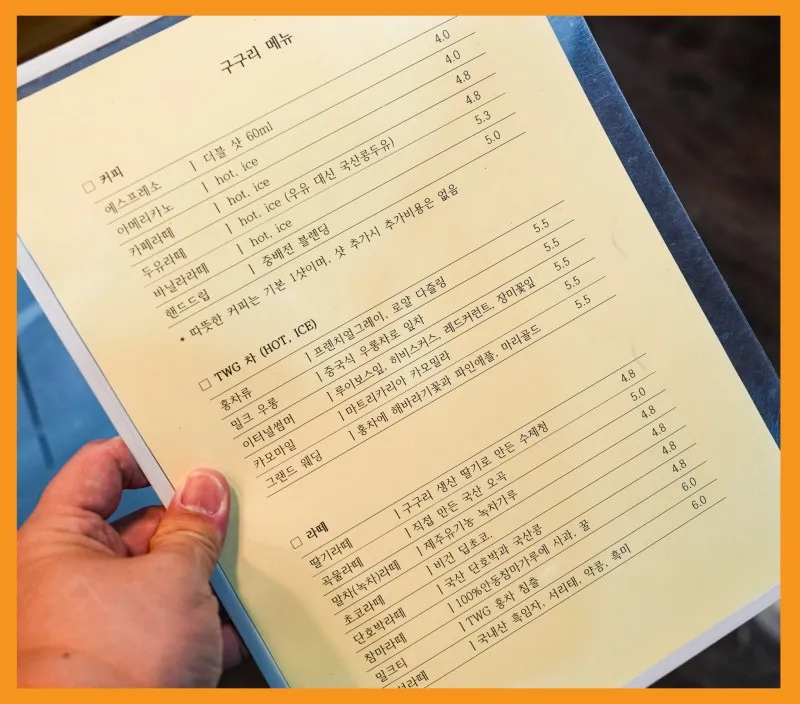 구구리 메뉴
□ 커피
에스프레소 | 더블 샷 60ml 4.0
아메리카노 | hot, ice 4.0
카페라떼 | hot, ice 4.8
두유라떼 | hot, ice (우유 대신 국산콩두유) 4.8
바닐라라떼 | hot, ice 5.3
핸드드립 | 중배전 블렌딩 5.0
* 따뜻한 커피는 기본 1샷이며, 샷 추가시 추가비용은 없음
□ TWG 차 (HOT, ICE)
홍차류 | 프렌치얼그레이, 로얄 다즐링 5.5
밀크 우롱 | 중국식 우롱차로 잎차 5.5
이터널썸머 | 루이보스잎, 히비스커스, 레드커런트, 장미꽃잎 5.5
카모마일 | 마트리카리아 카모밀라 5.5
그랜드 웨딩 | 홍차에 해바라기꽃과 파인애플, 마리골드 5.5
□ 라떼
딸기라떼 | 구구리 생산 딸기로 만든 수제청 4.8
곡물라떼 | 직접 만든 국산 오곡 5.0
말차(녹차)라떼 | 제주유기농 녹차가루 4.8
초코라떼 | 비건 딥초코 4.8
단호박라떼 | 국산 단호박과 국산콩 4.8
참마라떼 | 100%안동참마가루에 사과, 꿀 4.8
밀크티 | TWG 홍차 침출 6.0
| 국내산 흑임자, 서리태, 약콩, 흑미 6.0